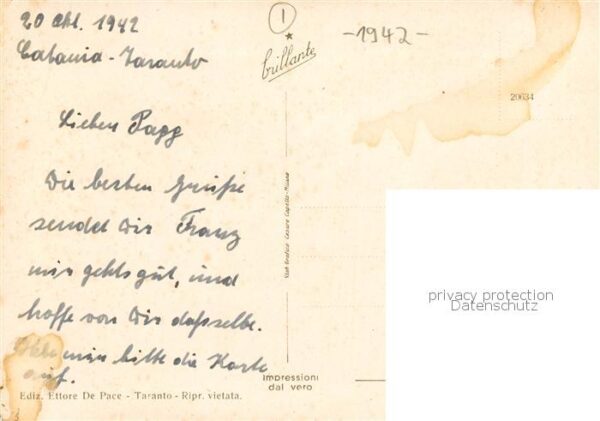 20 Okt. 1942
Catania - Taranto
Lieber Papp
Die besten Grüße
sendet Dir Franz
mir gehts gut, und
hoffe von Dir daßselbe.
Hebe mir bitte die Karte
auf.
Ediz. Ettore De Pace - Taranto - Ripr. vietata.
1
brillante
-1942-
20634
Stab Grafico Cesare Capello - Milano
Impressioni
dal vero
privacy protection
Datenschutz